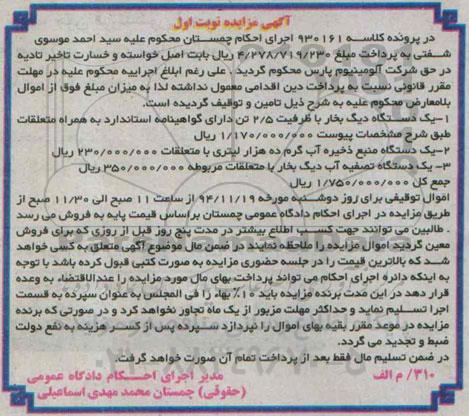 آگهی مزایده نوبت اول
در پرونده کلاسه ۹۳۰۱۶۱ اجرای احکام چمستان محکوم علیه سید احمد موسوی
شفتی به پرداخت مبلغ ۴/۲۷۸/۷۱۹/۲۳۰ ریال بابت اصل خواسته و خسارت تاخیر تادیه
در حق شرکت آلومینیوم پارس محکوم گردید . علی رغم ابلاغ اجراییه محکوم علیه در مهلت
مقرر قانونی نسبت به پرداخت دین اقدامی معمول نداشته لذا به میزان مبلغ فوق از اموال
بلامعارض محکوم علیه به شرح ذیل تامین و توقیف گردیده است.
۱-یک دستگاه دیگ بخار با ظرفیت ۲/۵ تن دارای گواهینامه استاندارد به همراه متعلقات
طبق شرح مشخصات پیوست ۱/۱۷۰/۰۰۰/۰۰۰ ریال
۲-یک دستگاه منبع ذخیره آب گرم ده هزار لیتری با متعلقات ۲۳۰/۰۰۰/۰۰۰ ریال
۳- یک دستگاه تصفیه آب دیگ بخار با متعلقات مربوطه ۳۵۰/۰۰۰/۰۰۰ ریال
جمع کل ۱/۷۵۰/۰۰۰/۰۰۰ ریال
اموال توقیفی برای روز دوشنبه مورخه ۹۴/۱۱/۱۹ از ساعت ۱۱ صبح الی ۱۱/۳۰ صبح از
طریق مزایده در اجرای احکام دادگاه عمومی چمستان براساس قیمت پایه به فروش می رسد
. طالبین می توانند جهت کسب اطلاع بیشتر در مدت پنج روز قبل از روزی که برای فروش
معین گردید اموال مزایده را ملاحظه نمایند در ضمن مال موضوع آگهی متعلق به کسی خواهد
شد که بالاترین قیمت را در جلسه حضوری مزایده به صورت کتبی قبول کرده باشد با توجه
به اینکه دائره اجرای احکام می تواند پرداخت بهای مال مورد مزایده را عندالاقتضاء به وعده
قرار دهد در این مدت برنده مزایده باید ۱۰٪ بهاء را فی المجلس به عنوان سپرده به قسمت
اجرا تسلیم نماید و حداکثر مهلت مزبور از یک ماه تجاوز نخواهد کرد و در صورتی که برنده
مزایده در موعد مقرر بقیه بهای اموال را نپردازد سپرده پس از کسر هزینه به نفع دولت
ضبط و تجدید می گردد.
در ضمن تسلیم مال فقط بعد از پرداخت تمام آن صورت خواهد گرفت.
۳۱۰/ م الف
مدیر اجرای احکام دادگاه عمومی
(حقوقی) چمستان محمد مهدی اسماعیلی